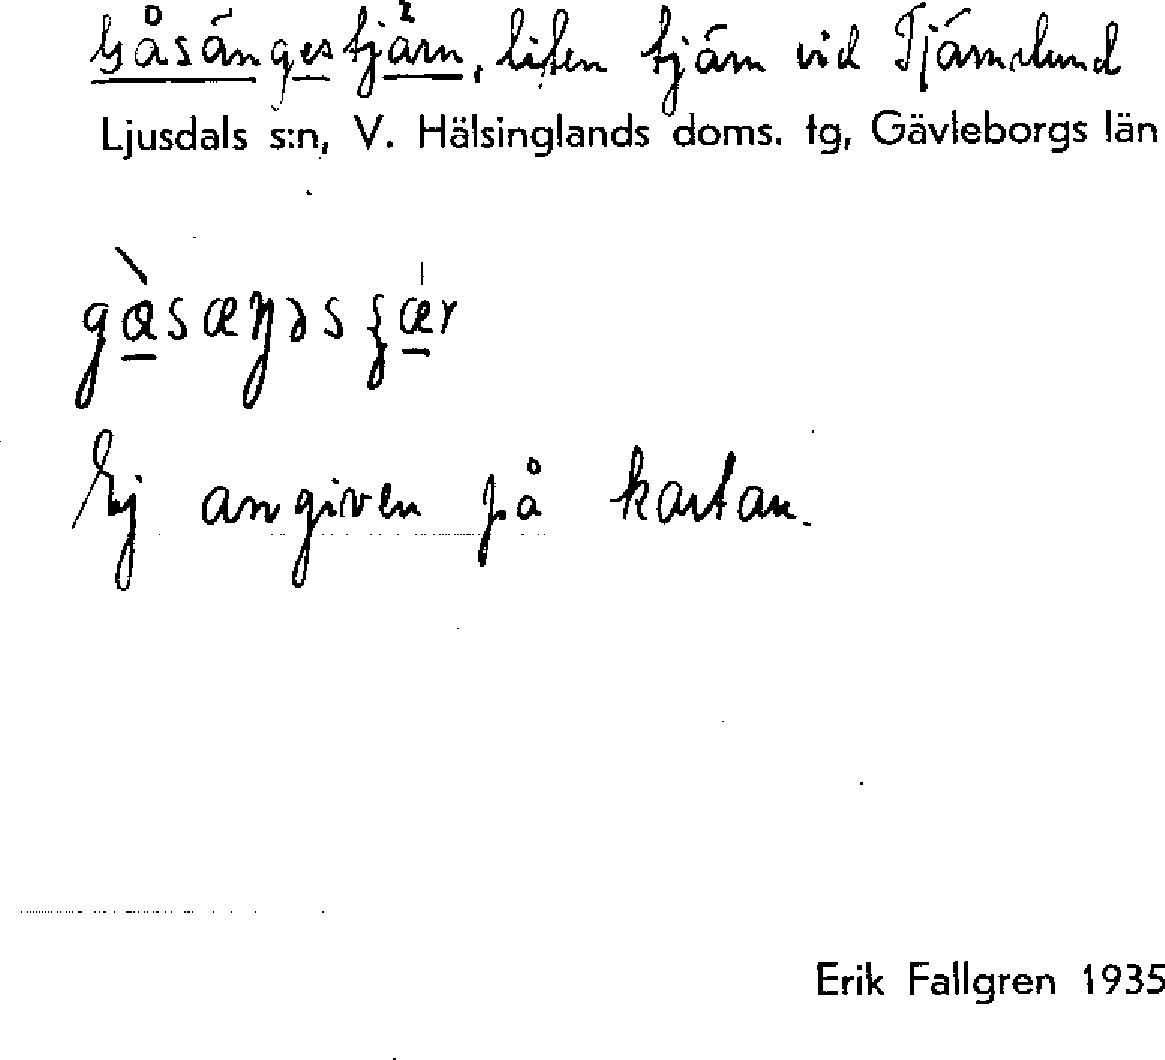 Gåsängestjärn, liten tjärn vid Tjärnslund
Ljusdals s:n, V. Hälsinglands doms. tg, Gävleborgs län
gɑ̀sæŋəsʃær
Ej angiven på kartan.
Erik Fallgren 1935